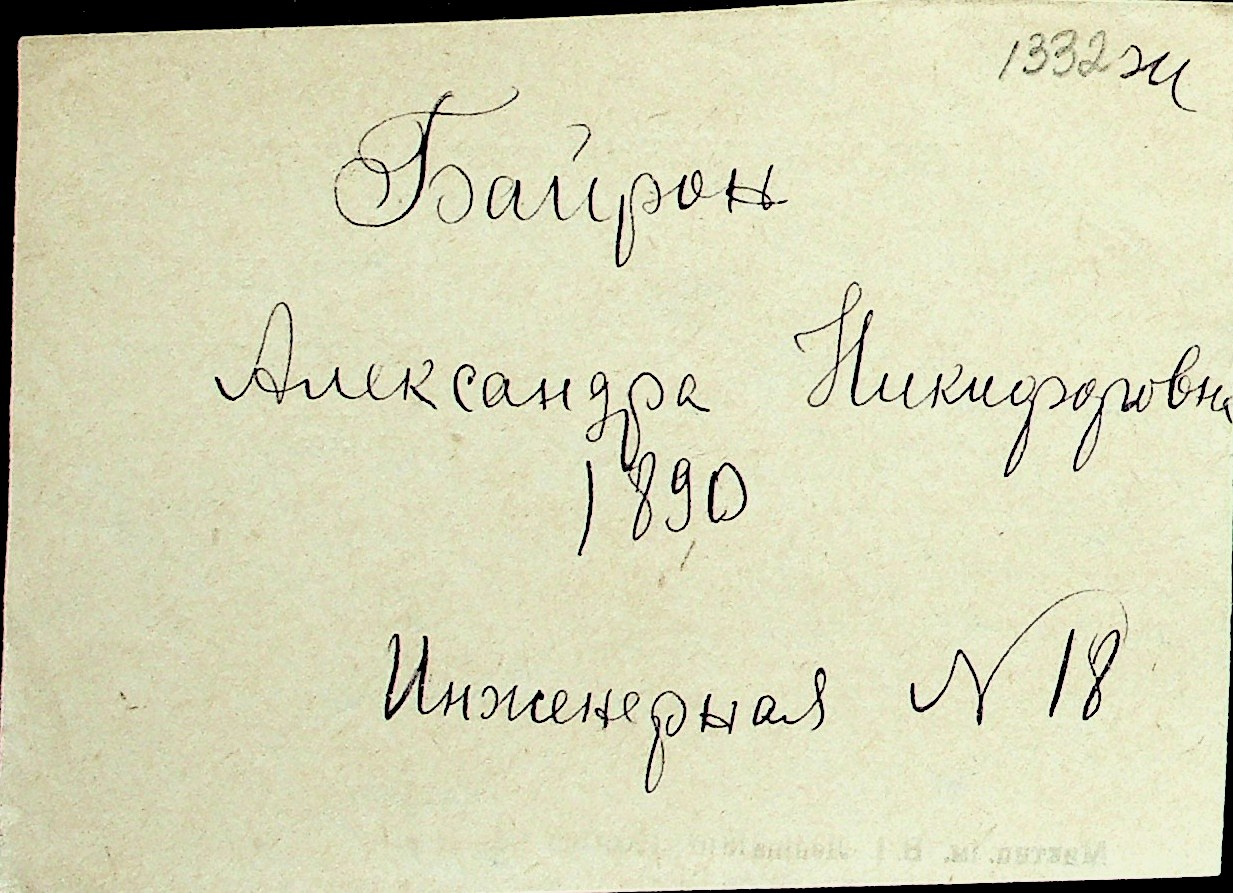 1332 ж
Байрон
Александра Никифоровна
1890
Инженерная N 18